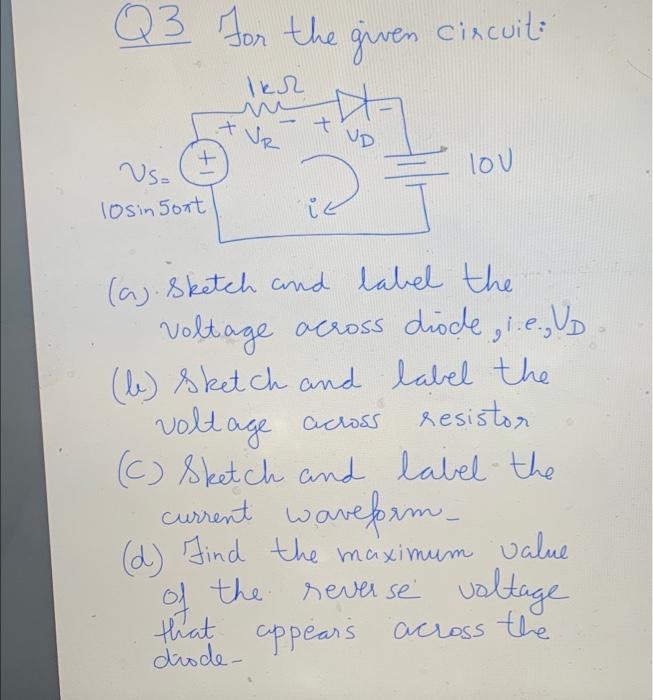 Q3 For the given circuit:
1kΩ
+ VR - + VD -
Vs=
+
-
10V
10sin50πt
i
(a). Sketch and label the
voltage across diode, i.e., VD
(b) Sketch and label the
voltage across resistor
(C) Sketch and label the
current waveform-
(d) Find the maximum value
of the reverse voltage
that appears across the
diode-